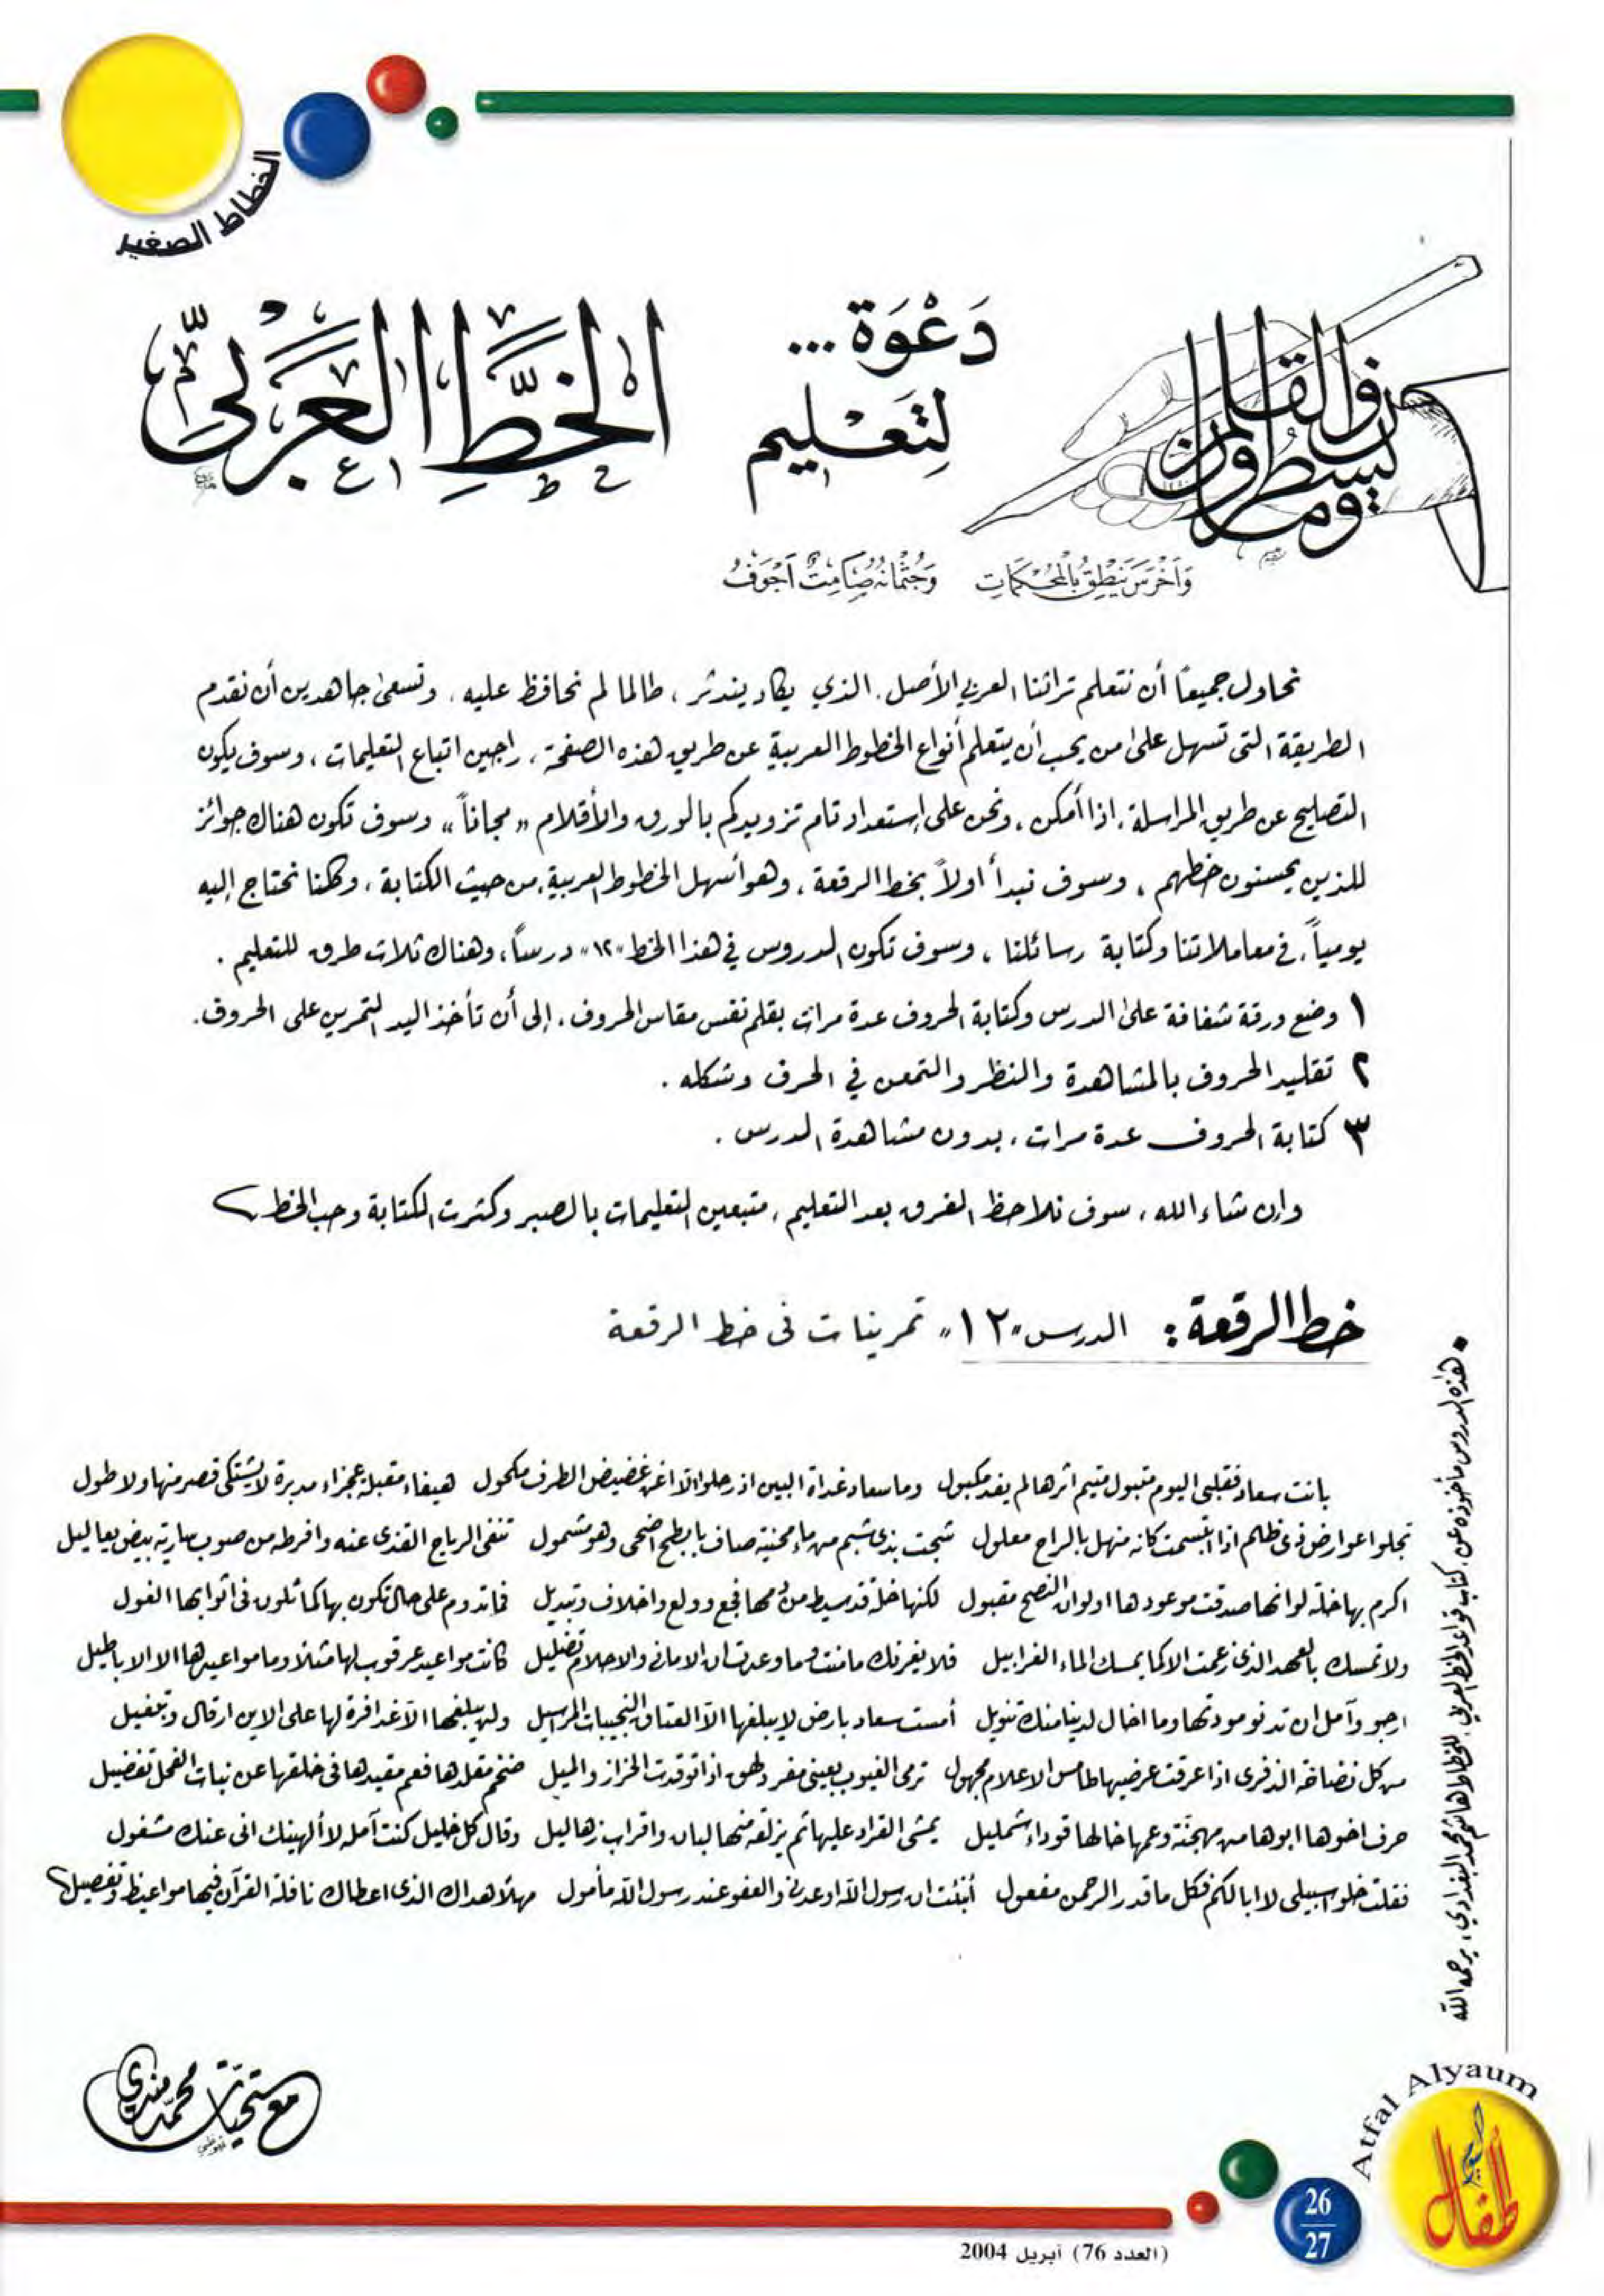 الخطاط الصغير
ن والقلم
وما يسطرون
دَعْوَة...
لِتَعْليم
الخطّ العَرَبيّ
وَأَخْرَسَ يَنْطِقُ بِالمُحْكَمَاتِ    وَجُثْمَانُهُ صَامِتٌ أَجْوَفُ
نحاول جميعاً أن نتعلم تراثنا العربي الأصل. الذي يكاد يندثر، طالما لم نحافظ عليه. ونسعى جاهدين أن نقدم
الطريقة التي تسهل على من يحب أن يتعلم أنواع الخطوط العربية عن طريق هذه الصفحة، راجين اتباع التعليمات، وسوف يكون
التصليح عن طريق المراسلة، إذا أمكن، ونحن على إستعداد تام تزويدكم بالورق والأقلام «مجاناً» وسوف تكون هناك جوائز
للذين يحسنون خطهم، وسوف نبدأ أولاً بخط الرقعة، وهو أسهل الخطوط العربية، من حيث الكتابة، وكلنا نحتاج إليه
يومياً، في معاملاتنا وكتابة رسائلنا، وسوف تكون الدروس في هذا الخط "١٢" درساً، وهناك ثلاث طرق للتعليم.
١ وضع ورقة شفافة على الدرس وكتابة الحروف عدة مرات بقلم نفس مقاس الحروف، إلى أن تأخذ اليد التمرين على الحروف.
٢ تقليد الحروف بالمشاهدة والنظر والتمعن في الحرف وشكله.
٣ كتابة الحروف عدة مرات، بدون مشاهدة الدرس.
وإن شاء الله، سوف نلاحظ الفرق بعد التعليم، متبعين التعليمات بالصبر وكثرت الكتابة وحب الخط
خط الرقعة: الدرس "١٢" تمرينات في خط الرقعة
بانت سعاد فقلبي اليوم متبول متيم اثرها لم يفد مكبول    وما سعاد غداة البين اذ رحلوا الا اغن غضيض الطرف مكحول    هيفاء مقبلة عجزاء مدبرة لا يشتكى قصر منها ولا طول
تجلوا عوارض ذى ظلم اذا ابتسمت كانه منهل بالراح معلول    شجت بذى شبم من ماء محنية صاف بابطح اضحى وهو مشمول    تنفى الرياح القذى عنه وافرطه من صوب سارية بيض يعاليل
اكرم بها خلة لو انها صدقت موعودها او لو ان النصح مقبول    لكنها خلة قد سيط من دمها فجع وولع واخلاف وتبديل    فما تدوم على حال تكون بها كما تلون فى اثوابها الغول
ولا تمسك بالعهد الذى زعمت الا كما يمسك الماء الغرابيل    فلا يغرنك ما منت وما وعدت ان الامانى والاحلام تضليل    كانت مواعيد عرقوب لها مثلا وما مواعيدها الا الاباطيل
ارجو وآمل ان تدنو مودتها وما اخال لدينا منك تنويل    أمست سعاد بارض لا يبلغها الا العتاق النجيبات المراسيل    ولن يبلغها الا غدافرة لها على الاين ارقال وتبغيل
من كل نضاخة الذفرى اذا عرقت عرضيها طامس الاعلام مجهول    ترمى الغيوب بعينى مفرد لهق اذا توقدت الحزاز والميل    ضخم مقلدها فعم مقيدها فى خلقها عن نبات الفحل تفضيل
حرف اخوها ابوها من مهجنة وعمها خالها قوداء شمليل    يمشى القراد عليها ثم يزلقه منها لبان واقراب زهاليل    وقال كل خليل كنت آمله لا ألهينك انى عنك مشغول
فقلت خلوا سبيلى لا ابالكم فكل ما قدر الرحمن مفعول    أنبئت ان رسول الله اوعدنى والعفو عند رسول الله مأمول    مهلا هداك الذى اعطاك نافلة القرآن فيها مواعيظ وتفصيل
• هذه الدروس مأخوذه عن: كتاب قواعد الخط العربي للخطاط هاشم محمد البغدادي، يرحمه الله
مع تحيات محمد مندي
أبوظبي
Atfal Alyaum
أطفال اليوم
26
27
(العدد 76) أبريل 2004